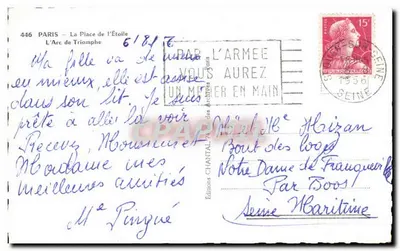 446 PARIS - La Place de l'Étoile
L'Arc de Triomphe
6/8/56
Ma fille va de mieux
en mieux, elle est assise
dans son lit. Je suis
prête à aller la voir
Recevez, Monsieur et
Madame mes
meilleures amitiés
Me Pingué
PAR L'ARMEE
VOUS AUREZ
UN METIER EN MAIN
SEINE
15F
Éditions CHANTAL
Mr et Me Hizan
Bout des loges
Notre Dame de Franqueville
Par Boos
Seine Maritime